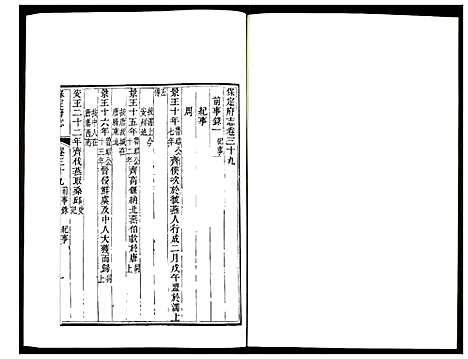 保定府志卷三十九
前事錄一 紀事
紀事
周
景王十年魯昭公七年齊侯次於虢燕人行成二月戊午盟於濡上
景王十五年齊高偃納北燕伯款於唐
景王十六年晉侵鮮虞及中人大獲而歸
安王二十二年齊伐燕取桑邱
保定府志 卷三十九 前事錄 紀事 一